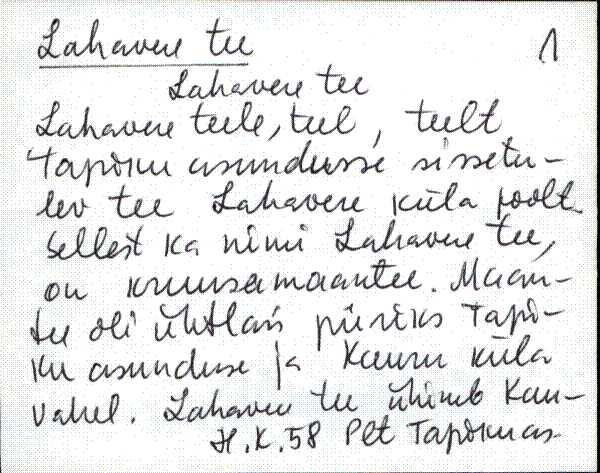 Lahavere tee 1
Lahavere tee
Lahavere teele, teel, teelt
Tapiku asundusse sissetu-
lev tee Lahavere küla poolt
sellest ka nimi Lahavere tee,
on kruusamaantee. Maan-
tee oli ühtlasi piiriks Tapi-
ku asunduse ja Kauru küla
vahel. Lahavere tee ühineb Kau-
H.K. 58 Plt Tapiku as.